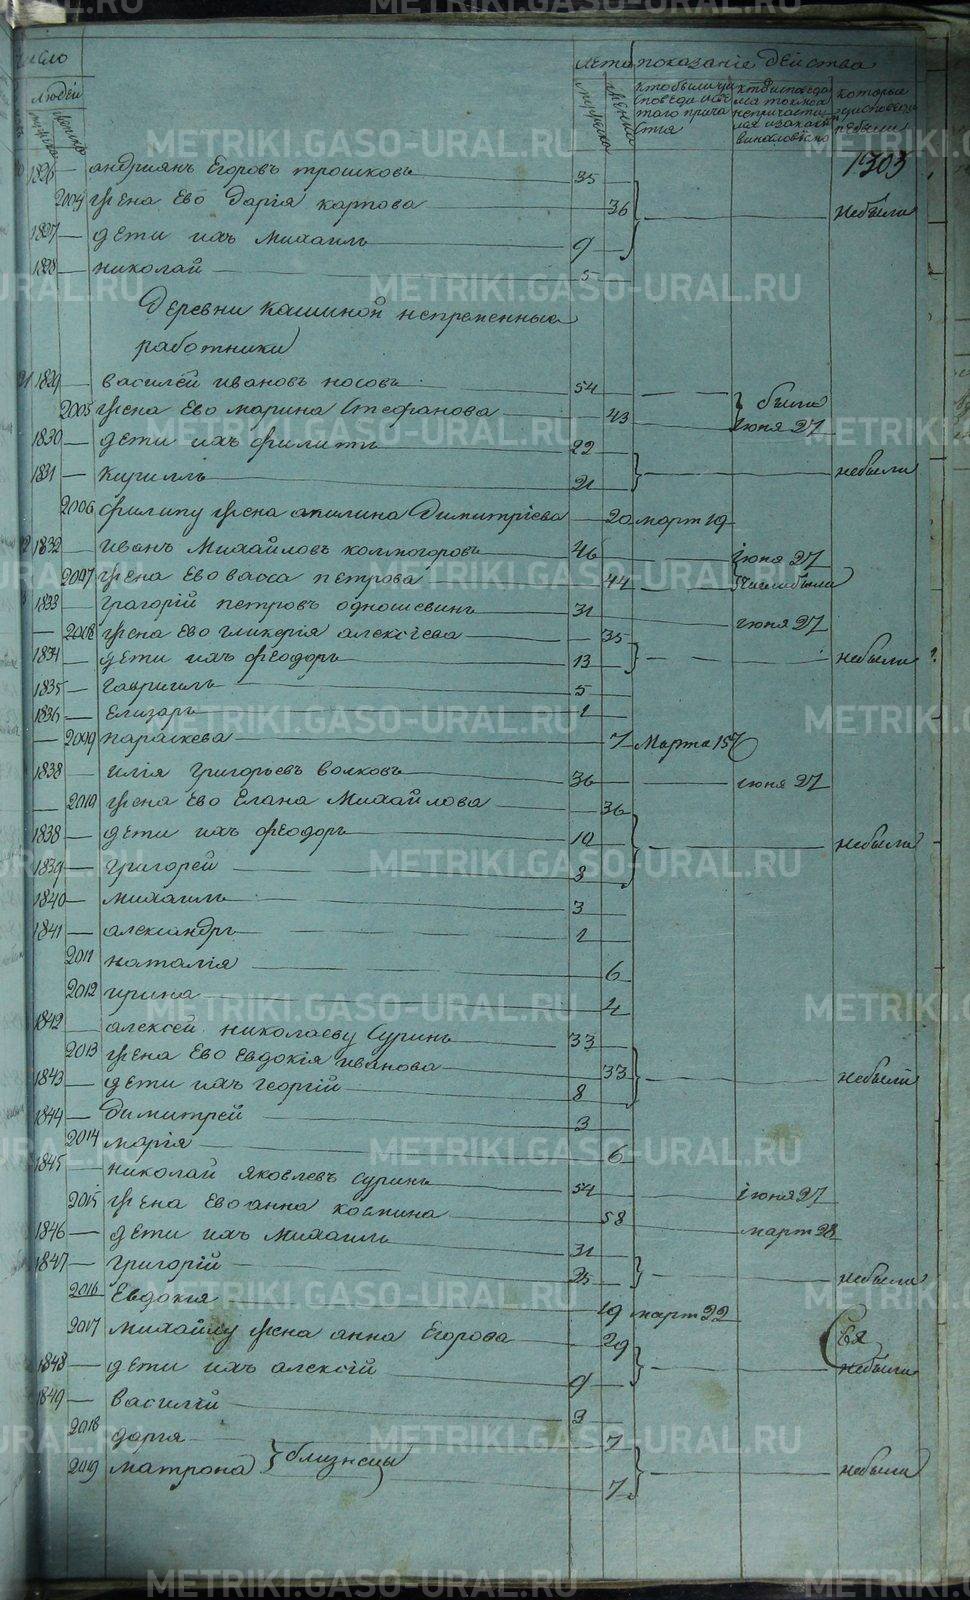 число
людей
лета показаніе действа
которые
1303
1826 — андриянъ Егоровъ трошковъ 35
2004 жена Ево Дарія карпова 36 небыли
1827 — дети ихъ Михаилъ 9
1828 — николай 5
Деревни кашиной непременныя
работники
1829 — василей ивановъ носовъ 54
2005 жена Ево марина Стефанова 43 были июня 27
1830 — дети ихъ филипъ 22
1831 — кириллъ 21 небыли
2006 филипу жена апилина Димитріева 20 март 19
1832 — иванъ Михайловъ колмогоровъ 46 июня 27
2007 жена Ево васса петрова 44
1833 — григорій петровъ одношевинъ 31 июня 27
2008 жена Ево гликерія алексіева 35
1834 — дети ихъ феодоръ 13 небыли
1835 — гавриилъ 5
1836 — Елизаръ 1
2009 параскева 7 Марта 15
1838 — илія григорьевъ волковъ 36 июня 27
2010 жена Ево Елана Михайлова 36
1838 — дети ихъ феодоръ 10 небыли
1839 — григорей 8
1840 — михаилъ 3
1841 — александръ 1
2011 наталія 6
2012 ирина 4
1842 алексей николаеву Суринъ 33
2013 жена Ево Евдокія иванова 33
1843 — дети ихъ георгій 8 небыли
1844 — димитрей 3
2014 марія 6
1845 — николай яковлевъ суринъ 54 июня 27
2015 жена Ево анна козмина 58 март 28
1846 — дети ихъ михаилъ 31
1847 — григорій 25 небыли
2016 Евдокія 19 март 22
2017 михайлу жена анна Егорова 29
1848 — дети ихъ алексій 9 небыли
1849 — василій 3
2018 дарія 7
2019 матрона } близнецы 7 небыли
METRIKI.GASO-URAL.RU